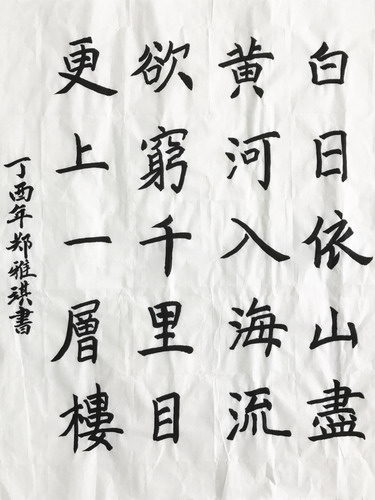 白日依山盡
黄河入海流
欲窮千里目
更上一層樓
丁酉年郑雅琪書